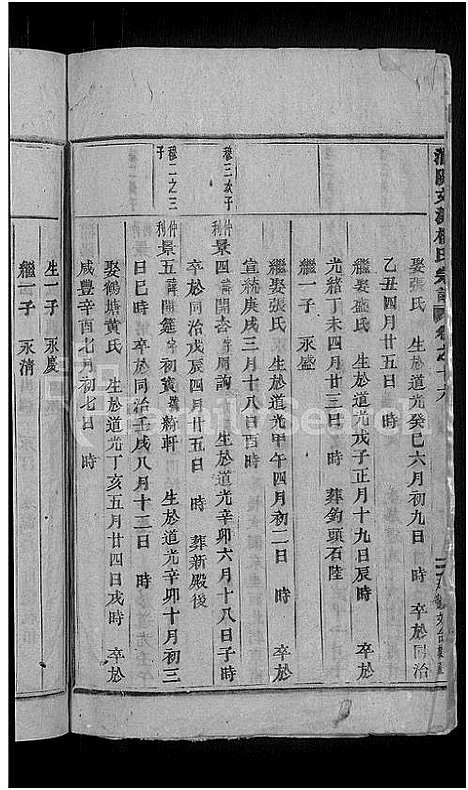 娶張氏 生於道光癸巳六月初九日 時 卒於同治
乙丑四月廿五日 時
繼娶盛氏 生於道光戊子正月十九日辰時 卒於
光緒丁未四月廿三日 時 葬釣頭石陸
繼一子 永盛
繼娶張氏 生於道光甲午四月初二日 時 卒於
宣統庚戌三月十八日酉時
穆三次子
仲利
景四 諱開 字 生於道光辛卯六月十八日子時
卒於同治戊辰四月廿五日 時 葬新殿後
穆二之三子
仲利
景五 諱開筵 字初賓 號新軒 生於道光辛卯十月初三
日巳時 卒於同治壬戌八月十三日 時
娶鶴塘黃氏 生於道光丁亥五月廿四日戌時 卒於
咸豐辛酉七月初七日 時
生一子 永慶
繼一子 永清